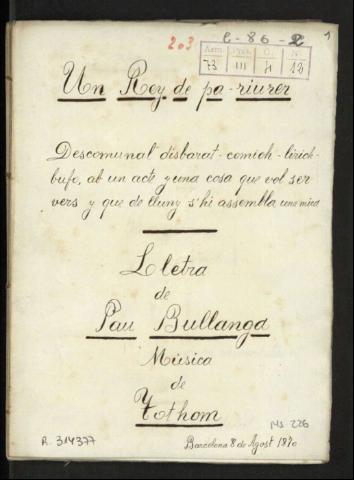 203
C-86-2
1
Arm. Prest. C. Nº
73 III 4 13
Un Rey de pa-riurer
Descomunal disbarat-comich-lirich-
bufo, ab un acte y una cosa que vol ser
vers y que de lluny s'hi assembla una mica
Lletra
de
Pau Bullanga
Música
de
Tothom
MS 226
R. 314377
Barcelona 8 de Agost 1870